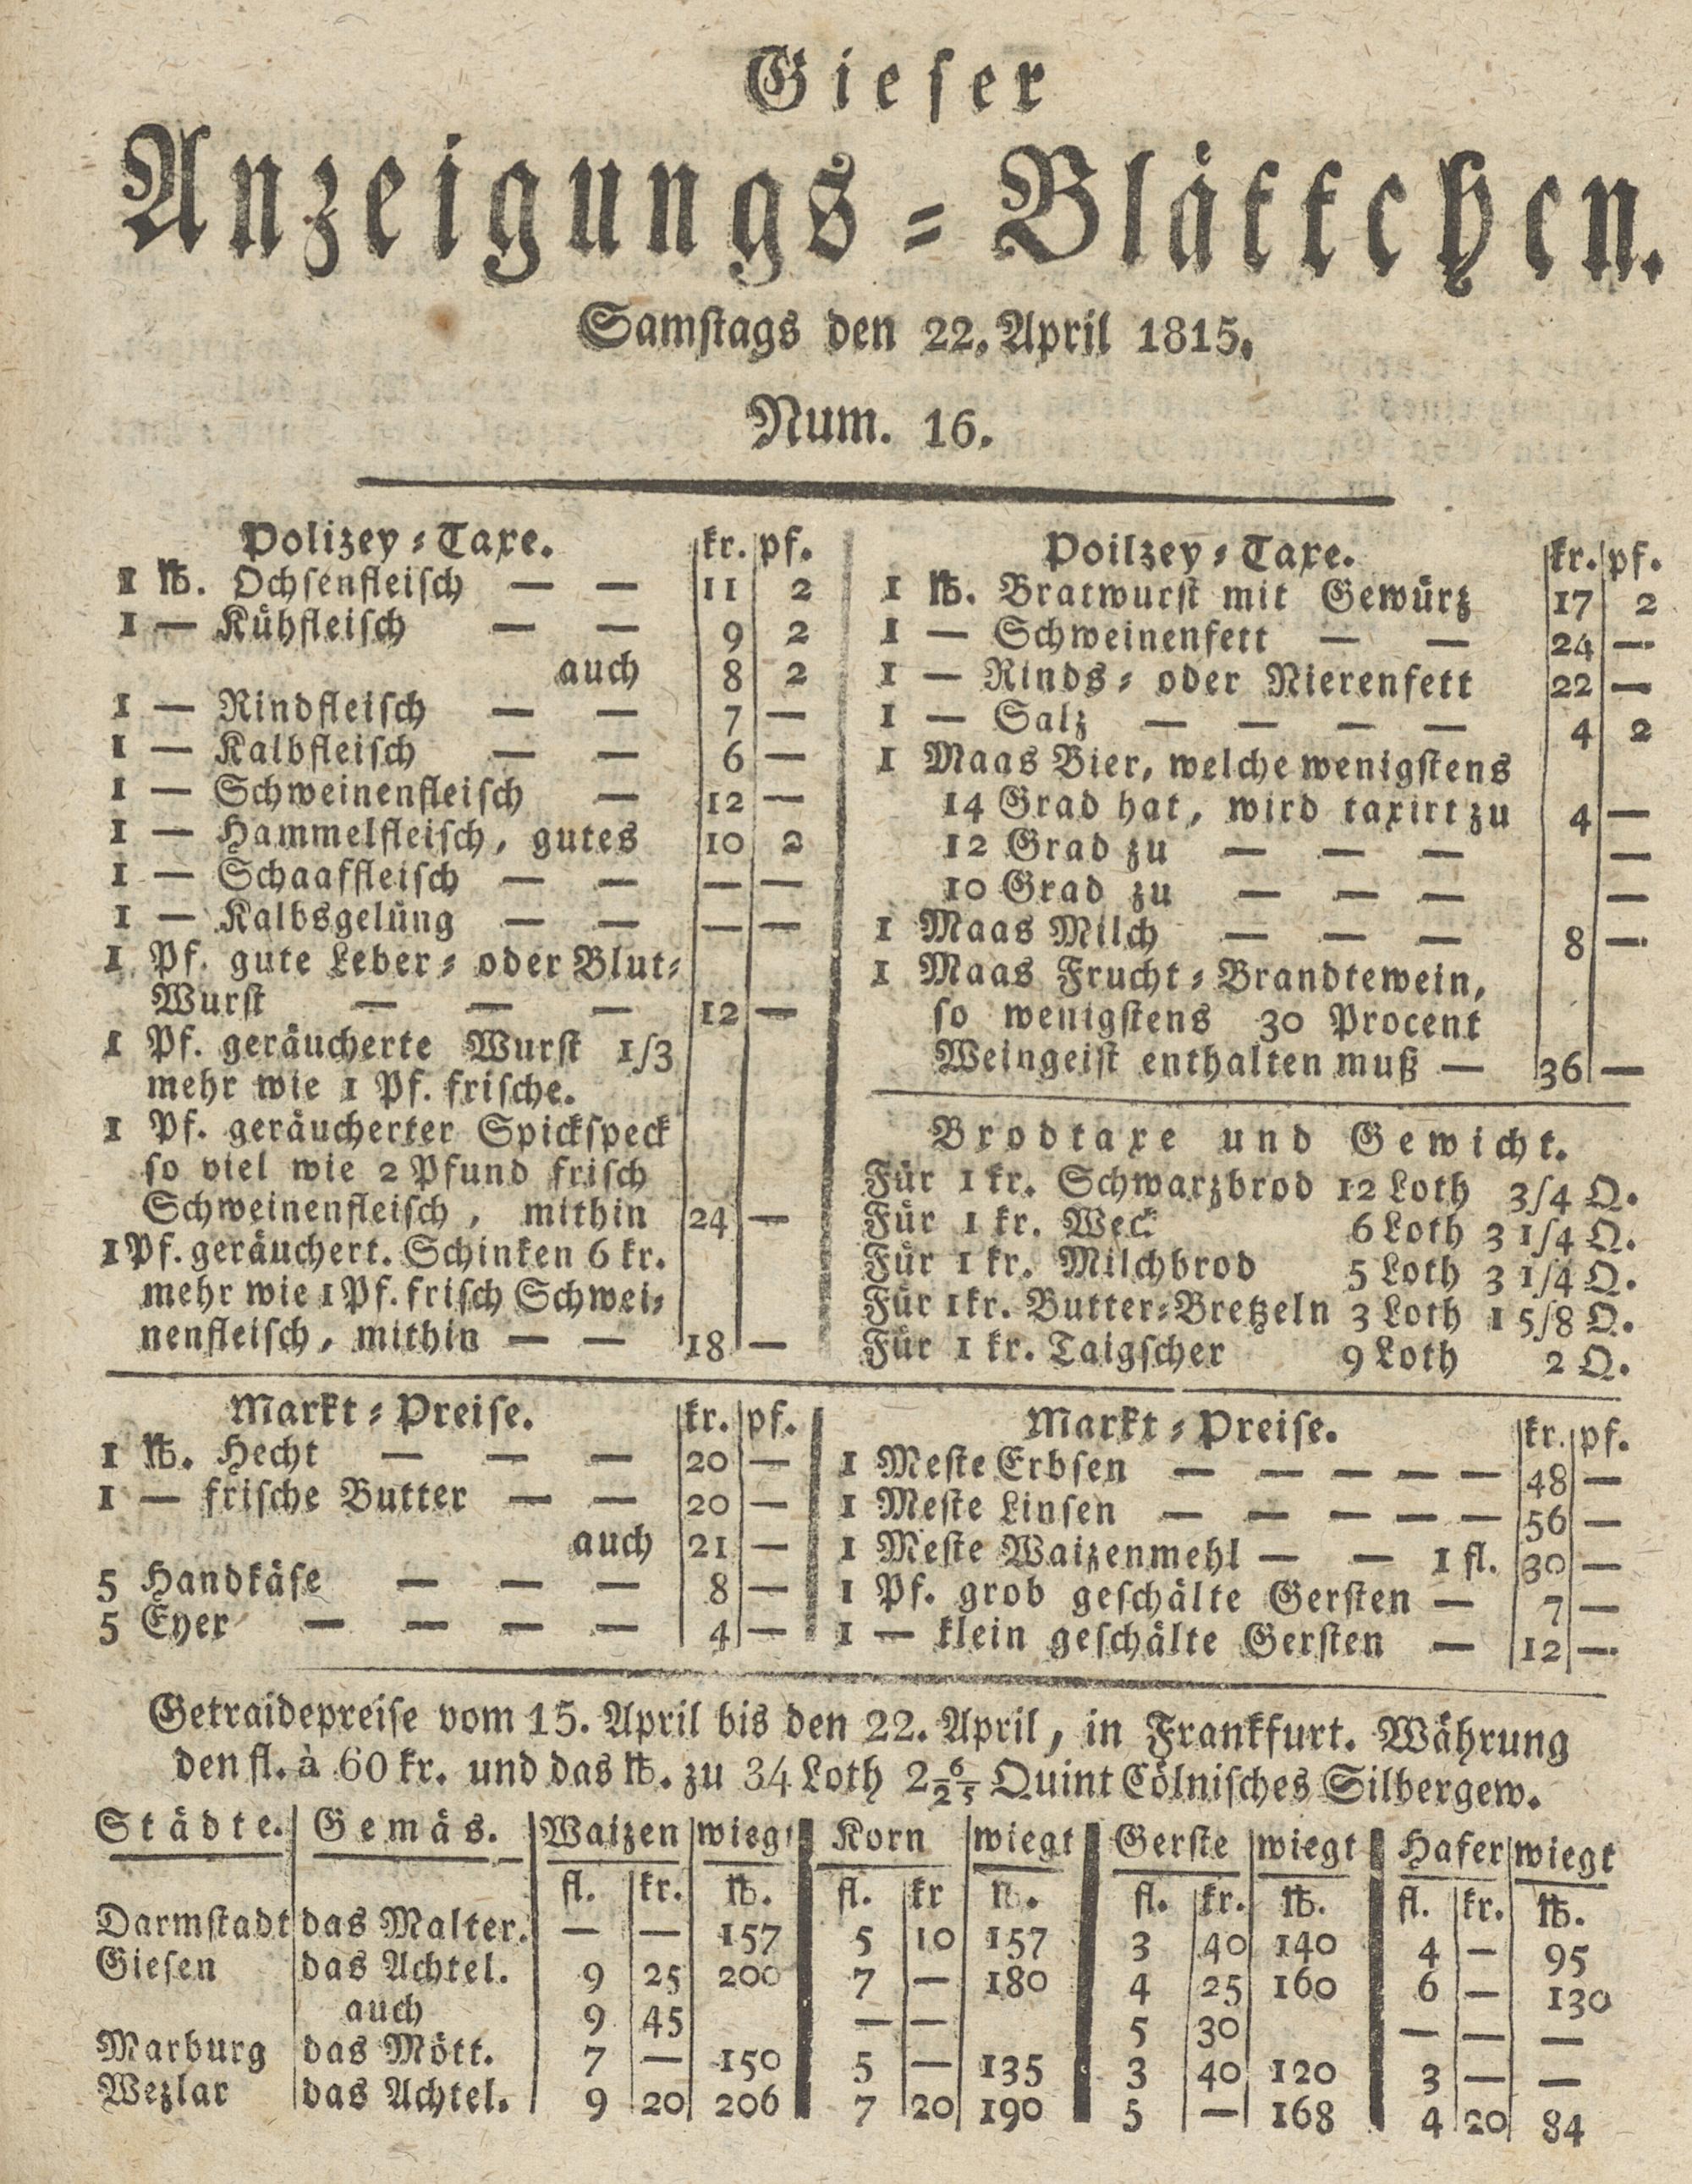 Gieser
Anzeigungs-Blättchen.
Samstags den 22. April 1815.
Num. 16.
Polizey-Taxe. kr. pf.
1 ℔. Ochsenfleisch — — 11 2
1 — Kühfleisch — — 9 2
auch 8 2
1 — Rindfleisch — — 7 —
1 — Kalbfleisch — — 6 —
1 — Schweinenfleisch — 12 —
1 — Hammelfleisch, gutes 10 2
1 — Schaaffleisch — — — —
1 — Kalbsgelüng — — — —
1 Pf. gute Leber- oder Blut-
Wurst — — — 12 —
1 Pf. geräucherte Wurst 1/3
mehr wie 1 Pf. frische.
1 Pf. geräucherter Spickspeck
so viel wie 2 Pfund frisch
Schweinenfleisch, mithin 24 —
1 Pf. geräuchert. Schinken 6 kr.
mehr wie 1 Pf. frisch Schwei-
nenfleisch, mithin — — 18 —
Poilzey-Taxe. kr. pf.
1 ℔. Bratwurst mit Gewürz 17 2
1 — Schweinenfett — — 24 —
1 — Rinds- oder Nierenfett 22 —
1 — Salz — — — — 4 2
1 Maas Bier, welche wenigstens
14 Grad hat, wird taxirt zu 4 —
12 Grad zu — — — —
10 Grad zu — — — —
1 Maas Milch — — — 8 —
1 Maas Frucht-Brandtewein,
so wenigstens 30 Procent
Weingeist enthalten muß — 36 —
Brodtaxe und Gewicht.
Für 1 kr. Schwarzbrod 12 Loth 3/4 Q.
Für 1 kr. Weck 6 Loth 3 1/4 Q.
Für 1 kr. Milchbrod 5 Loth 3 1/4 Q.
Für 1 kr. Butter-Bretzeln 3 Loth 1 5/8 Q.
Für 1 kr. Taigscher 9 Loth 2 Q.
Markt-Preise. kr. pf.
1 ℔. Hecht — — — 20 —
1 — frische Butter — — 20 —
auch 21 —
5 Handkäse — — — 8 —
5 Eyer — — — — 4 —
Markt-Preise. kr. pf.
1 Meste Erbsen — — — — — 48 —
1 Meste Linsen — — — — — 56 —
1 Meste Waizenmehl — — 1 fl. 30 —
1 Pf. grob geschälte Gersten — 7 —
1 — klein geschälte Gersten — 12 —
Getraidepreise vom 15. April bis den 22. April, in Frankfurt. Währung
den fl. à 60 kr. und das ℔. zu 34 Loth 2 6/25 Quint Cölnisches Silbergew.
Städte. Gemäs. Waizen wiegt Korn wiegt Gerste wiegt Hafer wiegt
fl. kr. ℔. fl. kr ℔. fl. kr. ℔. fl. kr. ℔.
Darmstadt das Malter. — — 157 5 10 157 3 40 140 4 — 95
Giesen das Achtel. 9 25 200 7 — 180 4 25 160 6 — 130
auch 9 45 — — 5 30 — — —
Marburg das Mött. 7 — 150 5 — 135 3 40 120 3 — —
Wezlar das Achtel. 9 20 206 7 20 190 5 — 168 4 20 84